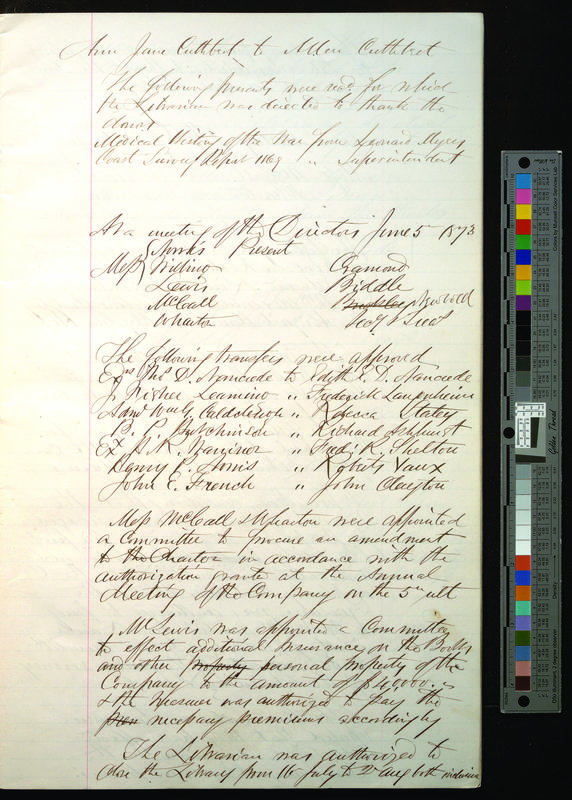 Ann Jane Cuthbert to Allen Cuthbert
The following presents were read for which
the Librarian was directed to thank the
donors
Medical History of the War from Leonard Myers
Coast Survey Report 1869 " Superintendent
At a meeting of the Directors June 5 1873
Norris Present
Mess Willing Cramond
Lewis Biddle
McCall Griswold
Wharton Secy & Treas
The following transfers were approved
Exrs Jno D. Nancrede to Edith E. D. Nancrede
J. Fisher Leaming " Frederick Langenheim
" Rebecca Staley
B. P. Hutchinson " Richard Ashhurst
Ex " Fred. R. Shelton
Henry P. " Roberts Vaux
John E. French " John Clayton
Mess McCall & Wharton were appointed
a Committee to procure an amendment
to the Charter in accordance with the
authorization at the Annual
Meeting of the Company on the 5th ult
Mr Lewis was appointed a Committee
to effect additional Insurance on the Books
and other property personal property of the
Company to the amount of $40,000.
& the Treasurer was authorized to pay the
necessary premiums accordingly
The Librarian was authorized to
close the Library from 16 July to 2d Aug both inclusive